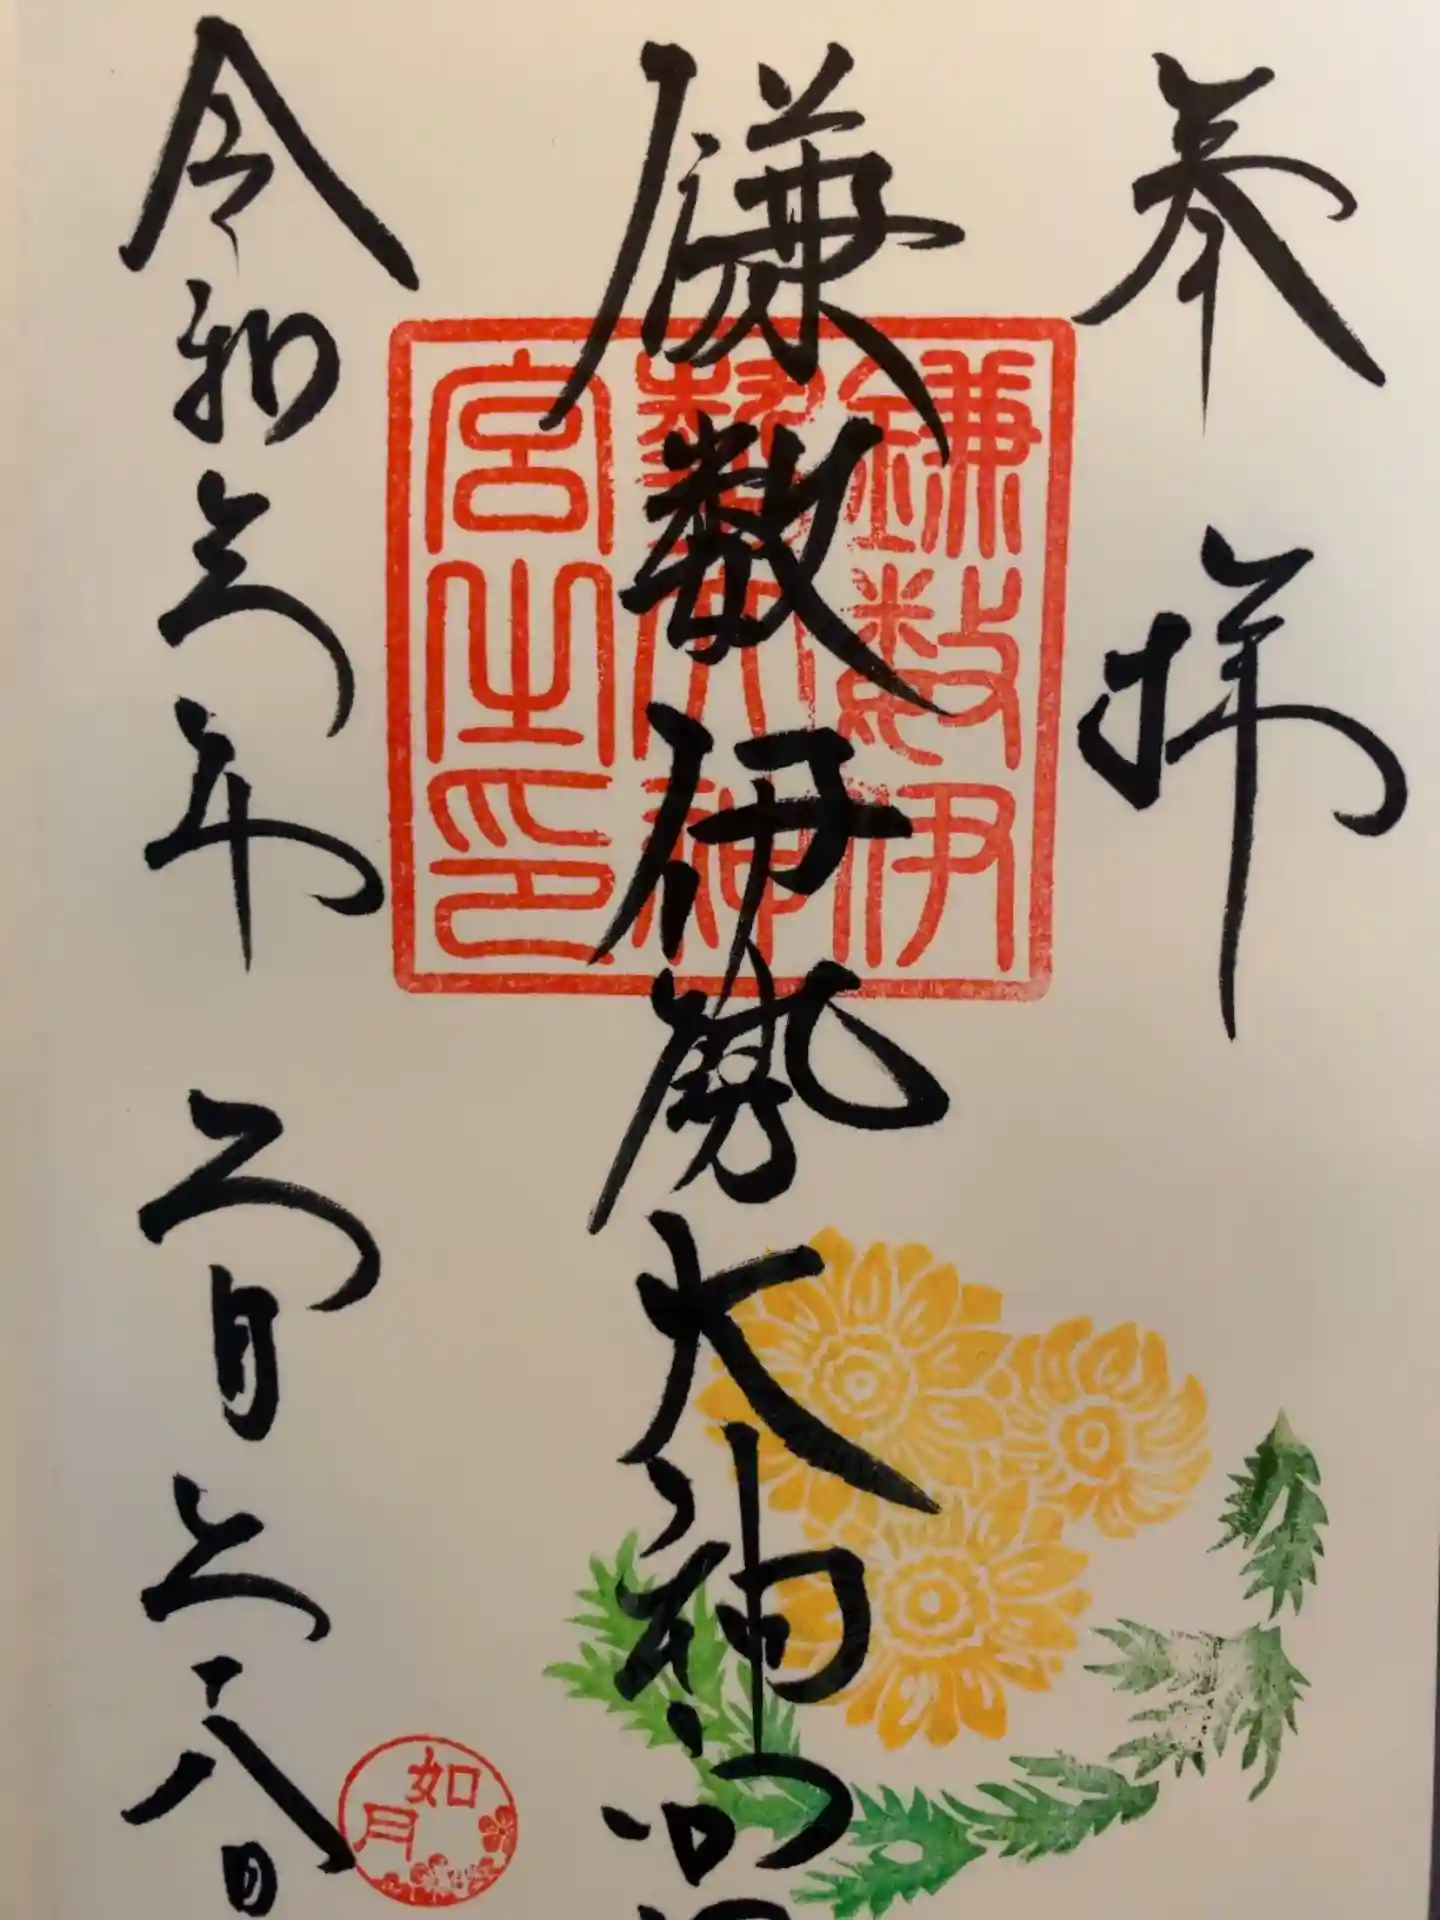 奉拝
鎌数伊勢大神宮
令和六年二月二十八日
鎌数伊
勢大神
宮之印
如月